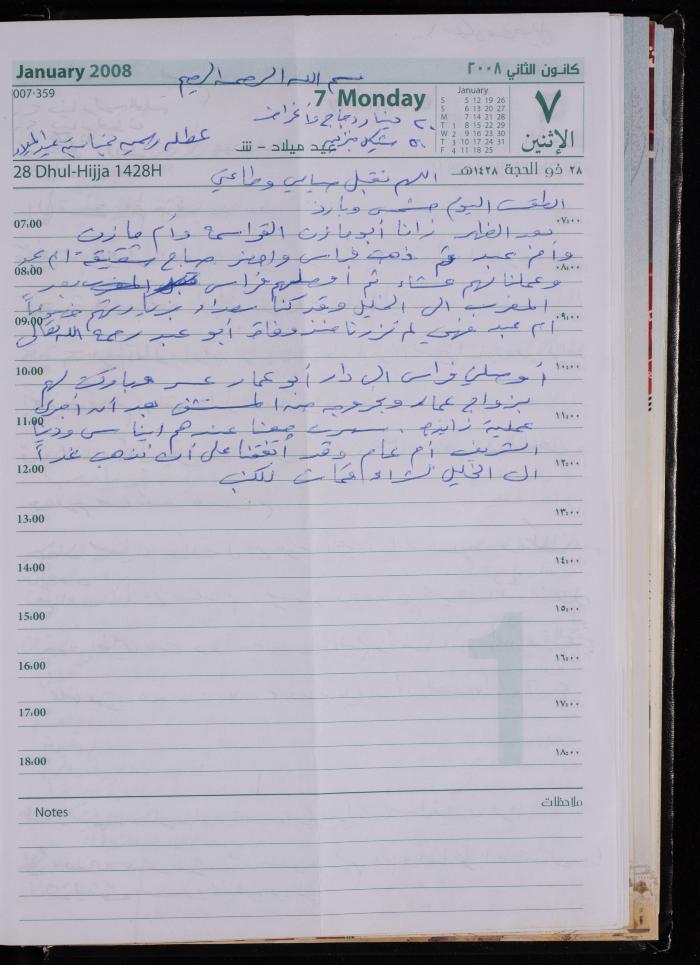 January 2008
كانون الثاني ٢٠٠٨
بسم الله الرحمن الرحيم
007-359
7 Monday
January
S 5 12 19 26
S 6 13 20 27
M 7 14 21 28
T 1 8 15 22 29
W 2 9 16 23 30
T 3 10 17 24 31
F 4 11 18 25
٧
الإثنين
٢٠ خضار ودجاج واغراض
٥٠
عطلة رسمية بمناسبة عيد الميلاد
عيد ميلاد - ش
28 Dhul-Hijja 1428H
٢٨ ذو الحجة ١٤٢٨هـ
اللهم تقبل صيامي وطاعتي
الطقس اليوم مشمس وبارد
07:00
٠٧:٠٠
بعد الظهر زارنا أبو مازن القواسمة وأم مازن
وأم عبد ثم ذهب فراس واحضر صباح شقيقة أم عبد
08:00
٠٨:٠٠
وعملنا لهم عشاء ثم أوصلهم فراس بعد
المغرب الى الخليل وقد كنا سعداء بزيارتهم خصوصاً
09:00
٠٩:٠٠
أم عبد فهي لم تزرنا منذ وفاة أبو عبد رحمه الله تعالى
10:00
١٠:٠٠
أوصلني فراس الى دار أبو عمار عسر مباركة لهم
بزواج عمار وبخروجه من المستشفى بعد أن أجرى
11:00
١١:٠٠
عملية زايدة. سهرت معنا عندهم ايناس ودينا
الشريف أم عاصم وقد أتفقنا على أن نذهب غداً
12:00
١٢:٠٠
الى الخليل لشراء
13:00
١٣:٠٠
14:00
١٤:٠٠
15:00
١٥:٠٠
16:00
١٦:٠٠
17:00
١٧:٠٠
18:00
١٨:٠٠
1
Notes
ملاحظات